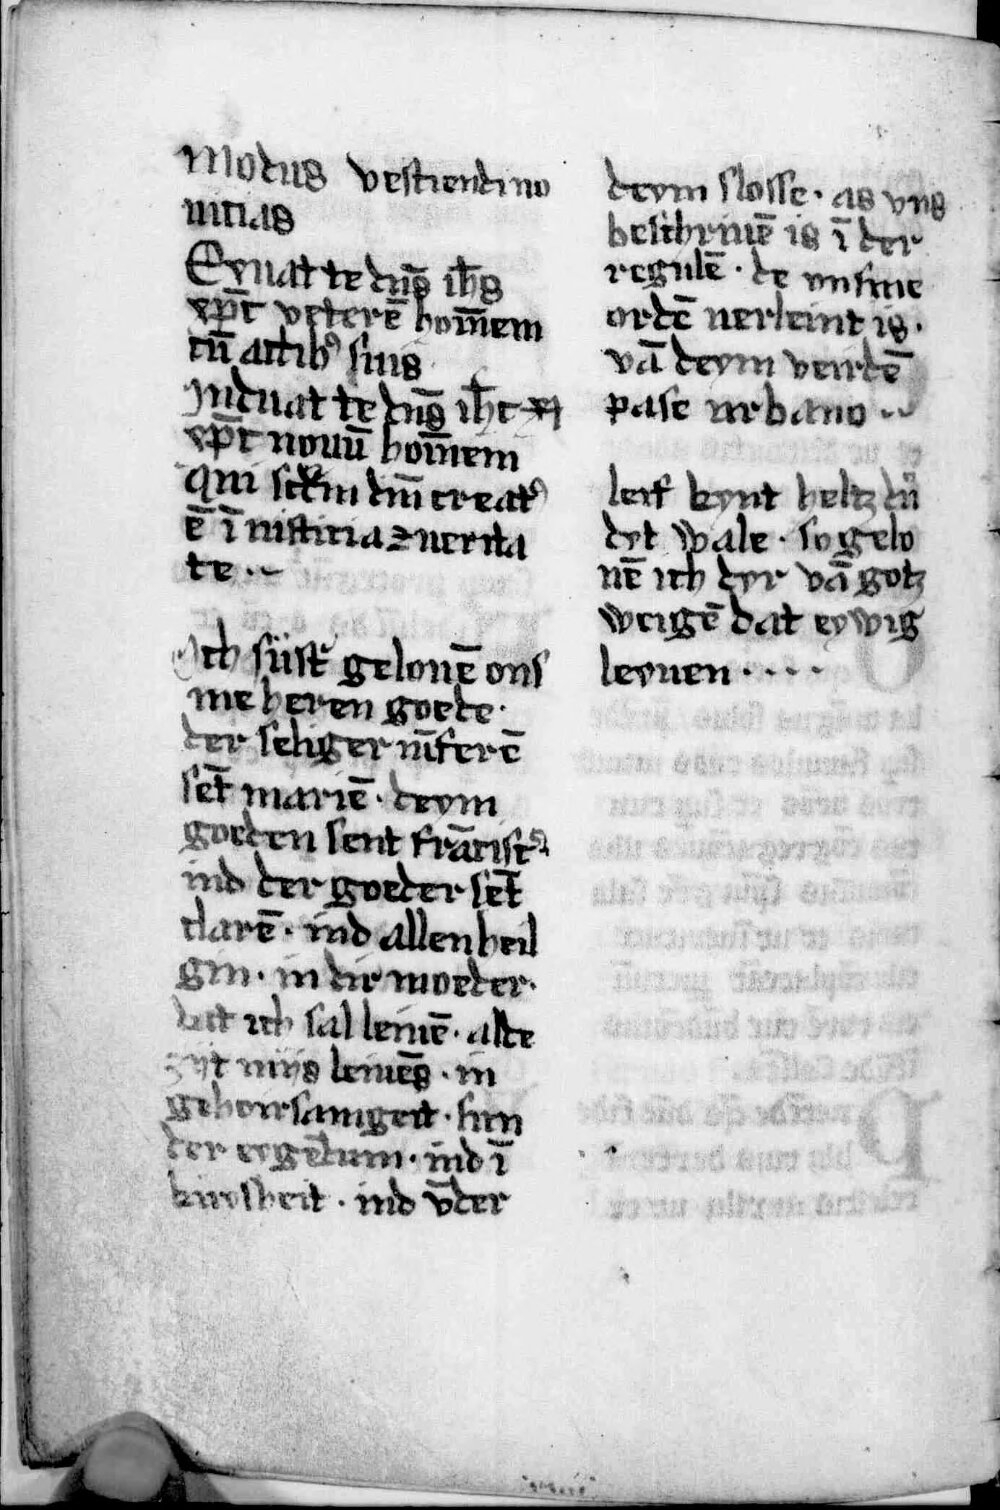 Modus vestiendi no
uicias
Exuat te dn̄s ih̄s
xp̄c veterē hom̄em
cū actibꝰ suis
Induat te dn̄s ih̄c
xp̄c nouū hom̄em
qui scd̄m dm̄ creatꝰ
ē ī iusticia ⁊ uerita
te · ~
Ich suster gelouē ons
me heren goede ·
der seliger iūferē
sēt mariē · deym
goeden sent frācisꝰ
ind der goeder sēt
clarē · ind allen heil
gin · in dir moeder ·
dat ich sal leiuē · alle
zijt mijs leiuēs · in
gehoirsamgeit · sun
der eygēdum · ind ī
kuysheit · ind v̄der
deym slosse · as vns
beschriuē is ī der
regulē · de vnsme
ordē uerleint is ·
vā deym veirdē
pase urbano ··
leif kynt heltz dů
dyt wale · so gelo
uē ich dyr vā gotz
weigē dat eywig
leyuen · · · ·